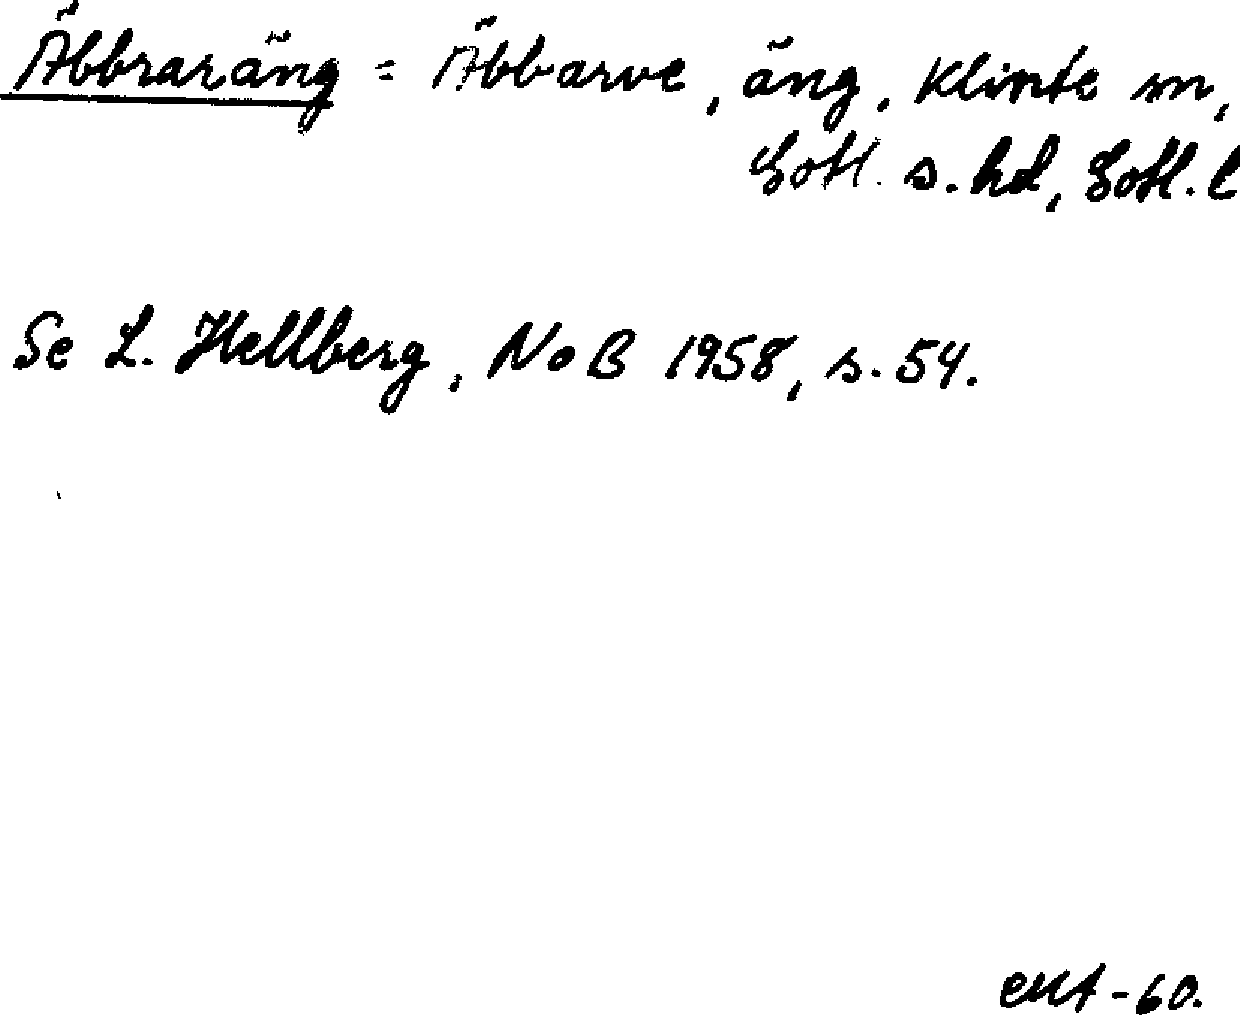 Äbbraräng = Äbbarve, äng, Klinte sn,
Gotl. s. hd, Gotl. l
Se L. Hellberg, NoB 1958, s. 54.
-60.